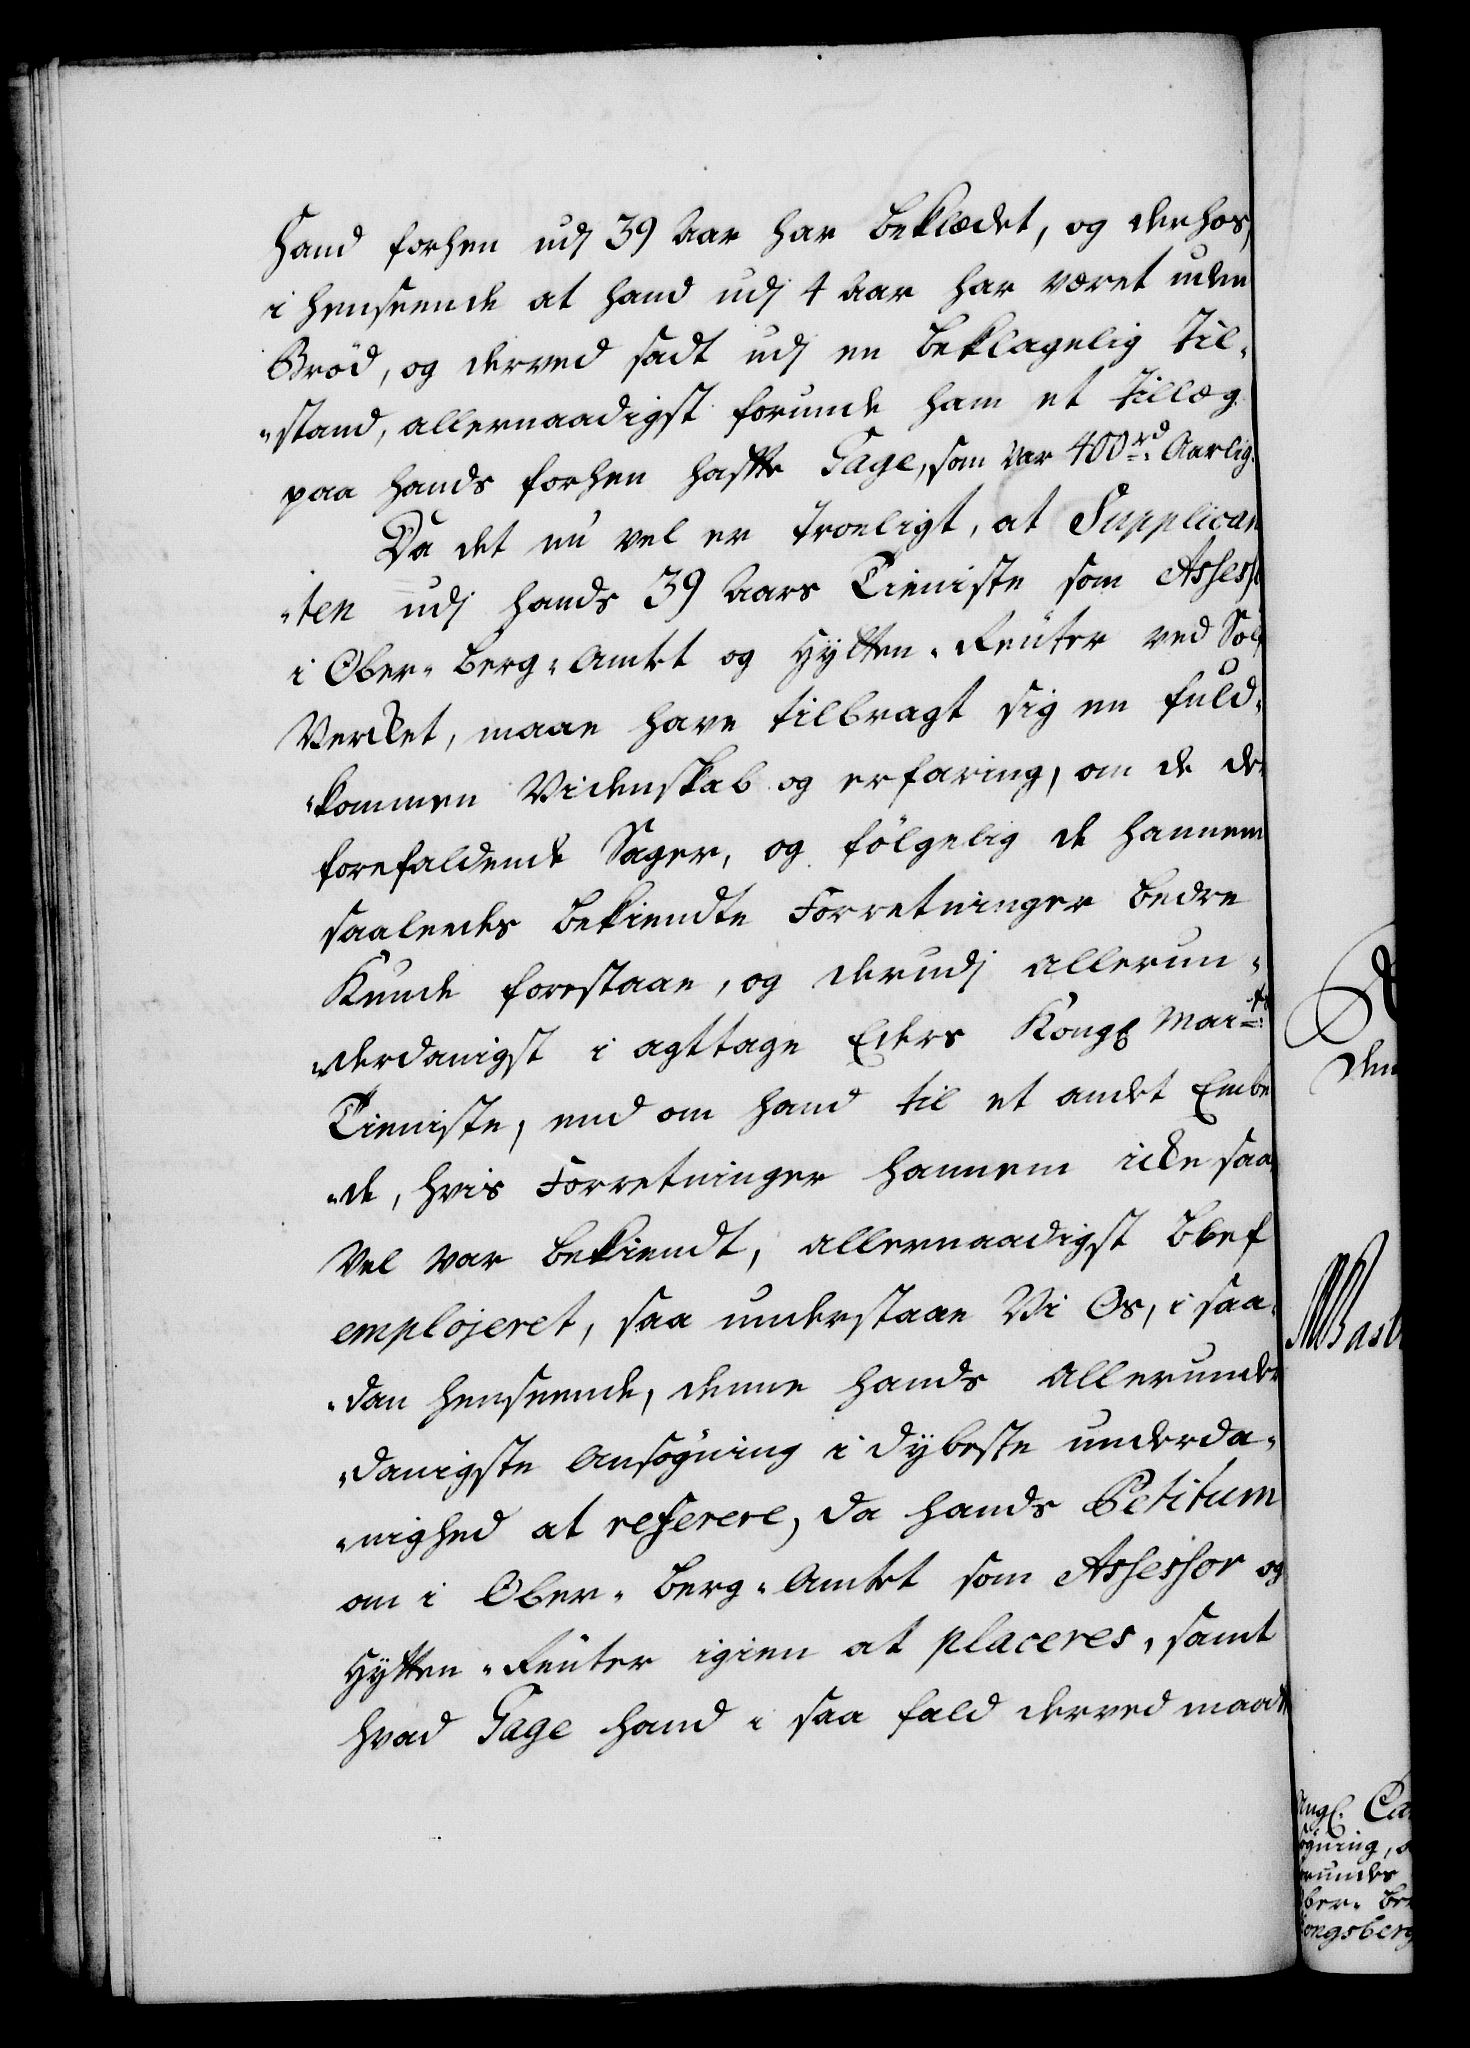 hand forhen udj 39 Aar har beklædet, og derhos,
i henseende at hand udj 4 Aar har været uden
Brød, og derved sadt udj en beklagelig Til-
-stand, allernaadigst forunde ham et Tillæg
paa hands forhen hafte Gage, som var 400 rd. Aarlig.
Da det nu vel er troeligt, at Supplican
-ten udj hands 39 Aars Tieniste som Assess
i Ober-Berg-Amtet og Hytten-Reuter ved Søl
Verket, maae have tilbragt sig en fuld-
-kommen Videnskab og erfaring, om de der
forefaldende Sager, og følgelig de hannem
saaledes bekiendte Forretninger bedre
Kunde forestaae, og derudj allerun-
-derdanigst i agttage Eders Kongl Mai.ts
Tieniste, end om hand til et andet Embe
-de, hvis Forretninger hannem icke saa
vel var bekiendt, allernaadigst blef
employeret, saa understaae Vi Os, i saa-
-dan henseende, denne hands allerunder
-danigste Ansøgning i dybeste underda-
-nighed at referere, da hands Petitum
om i Ober-Berg-Amtet som Assessor og
Hytten-Reuter igien at placeres, samt
hvad Gage hand i saa fald derved maatte